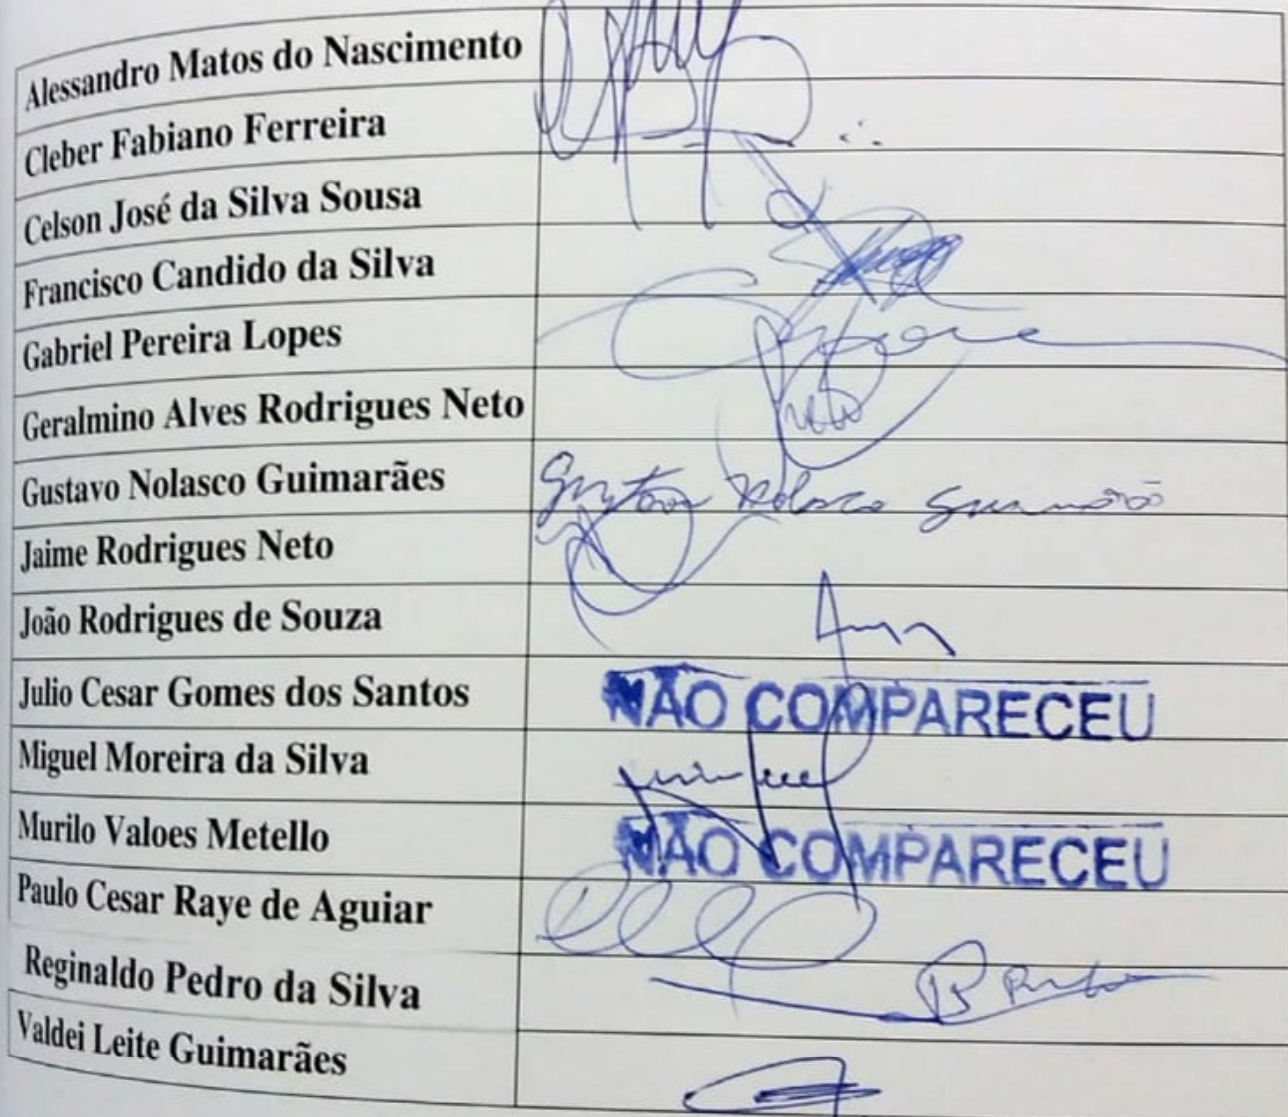 Alessandro Matos do Nascimento
Cleber Fabiano Ferreira
Celson José da Silva Sousa
Francisco Candido da Silva
Gabriel Pereira Lopes
Geralmino Alves Rodrigues Neto
Gustavo Nolasco Guimarães Gustavo Nolasco Guimarães
Jaime Rodrigues Neto
João Rodrigues de Souza
Julio Cesar Gomes dos Santos NÃO COMPARECEU
Miguel Moreira da Silva
Murilo Valoes Metello NÃO COMPARECEU
Paulo Cesar Raye de Aguiar
Reginaldo Pedro da Silva
Valdei Leite Guimarães